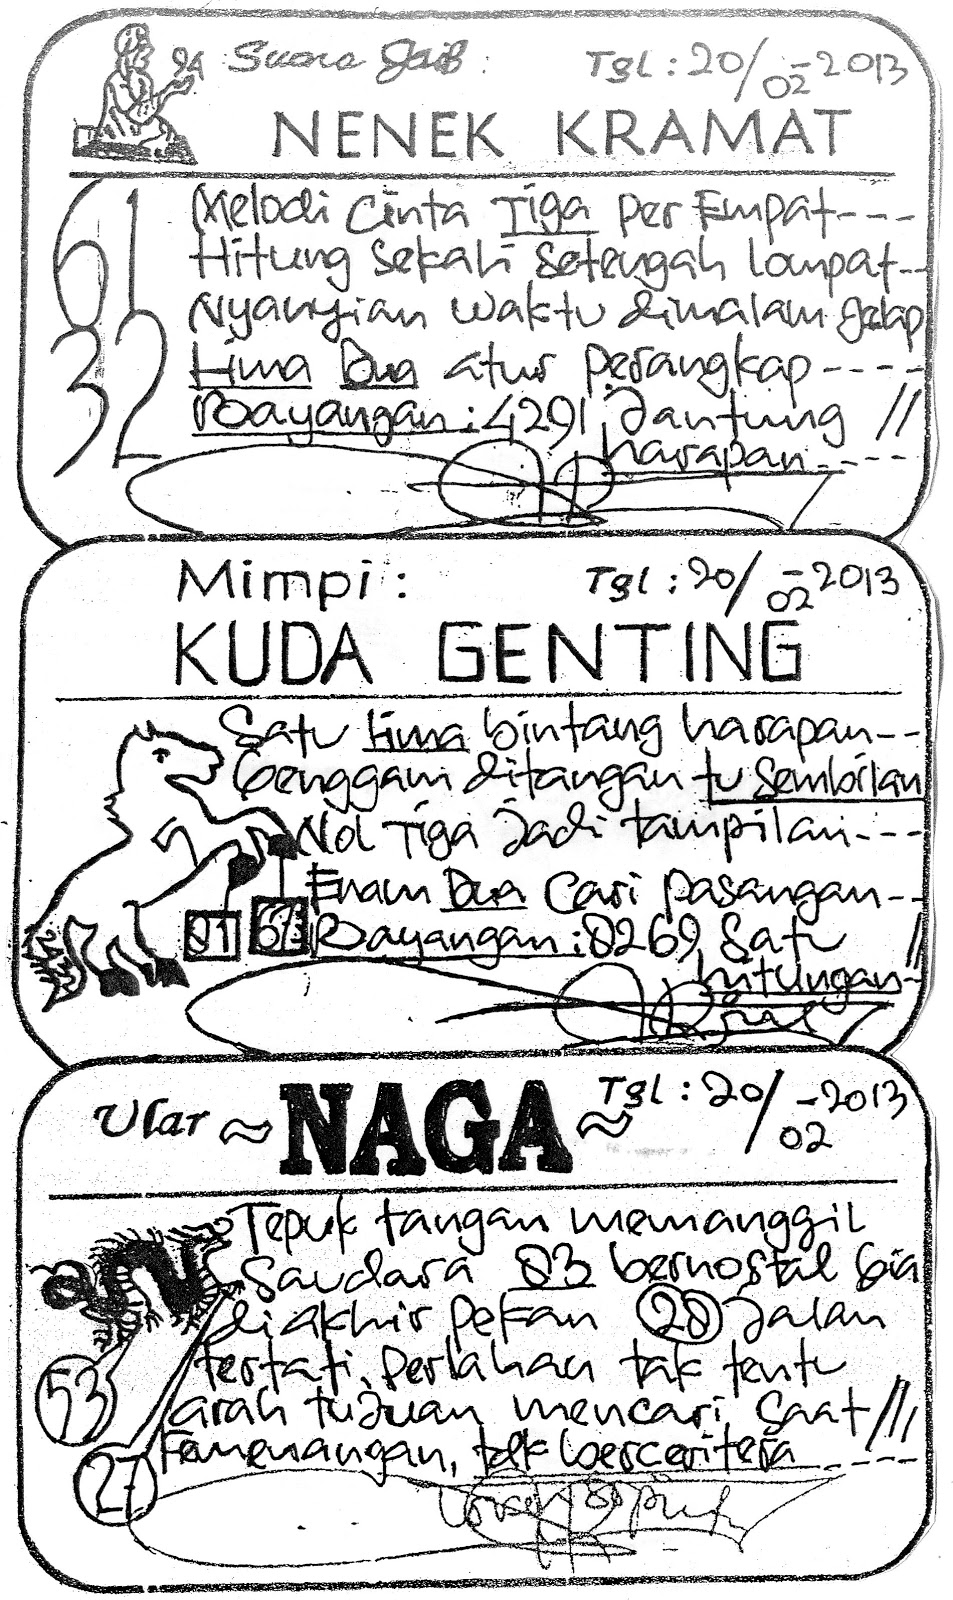 94 Suara Gaib: Tgl: 20/02-2013
NENEK KRAMAT
61 Melodi Cinta Tiga per Empat----
Hitung Sekali Setengah lompat--
32 Nyanyian waktu dimalam gelap
Lima Dua atur perangkap ----
Bayangan: 4291, Jantung //
harapan----
Mimpi: Tgl: 20/02-2013
KUDA GENTING
Satu lima bintang harapan--
Genggam ditangan tu Sembilan
Nol Tiga Jadi tampilan---
Enam Dua Cari pasangan--
81 67 Bayangan: 8269, Satu //
hitungan-
Ular ~ NAGA ~ Tgl: 20/02-2013
Tepuk tangan memanggil
Saudara 83 bernostal gia
diakhir pekan 28 Jalan
53 tertati, perlahan tak tentu
arah tujuan mencari, saat ///
27 Kemenangan, tak berceritera----